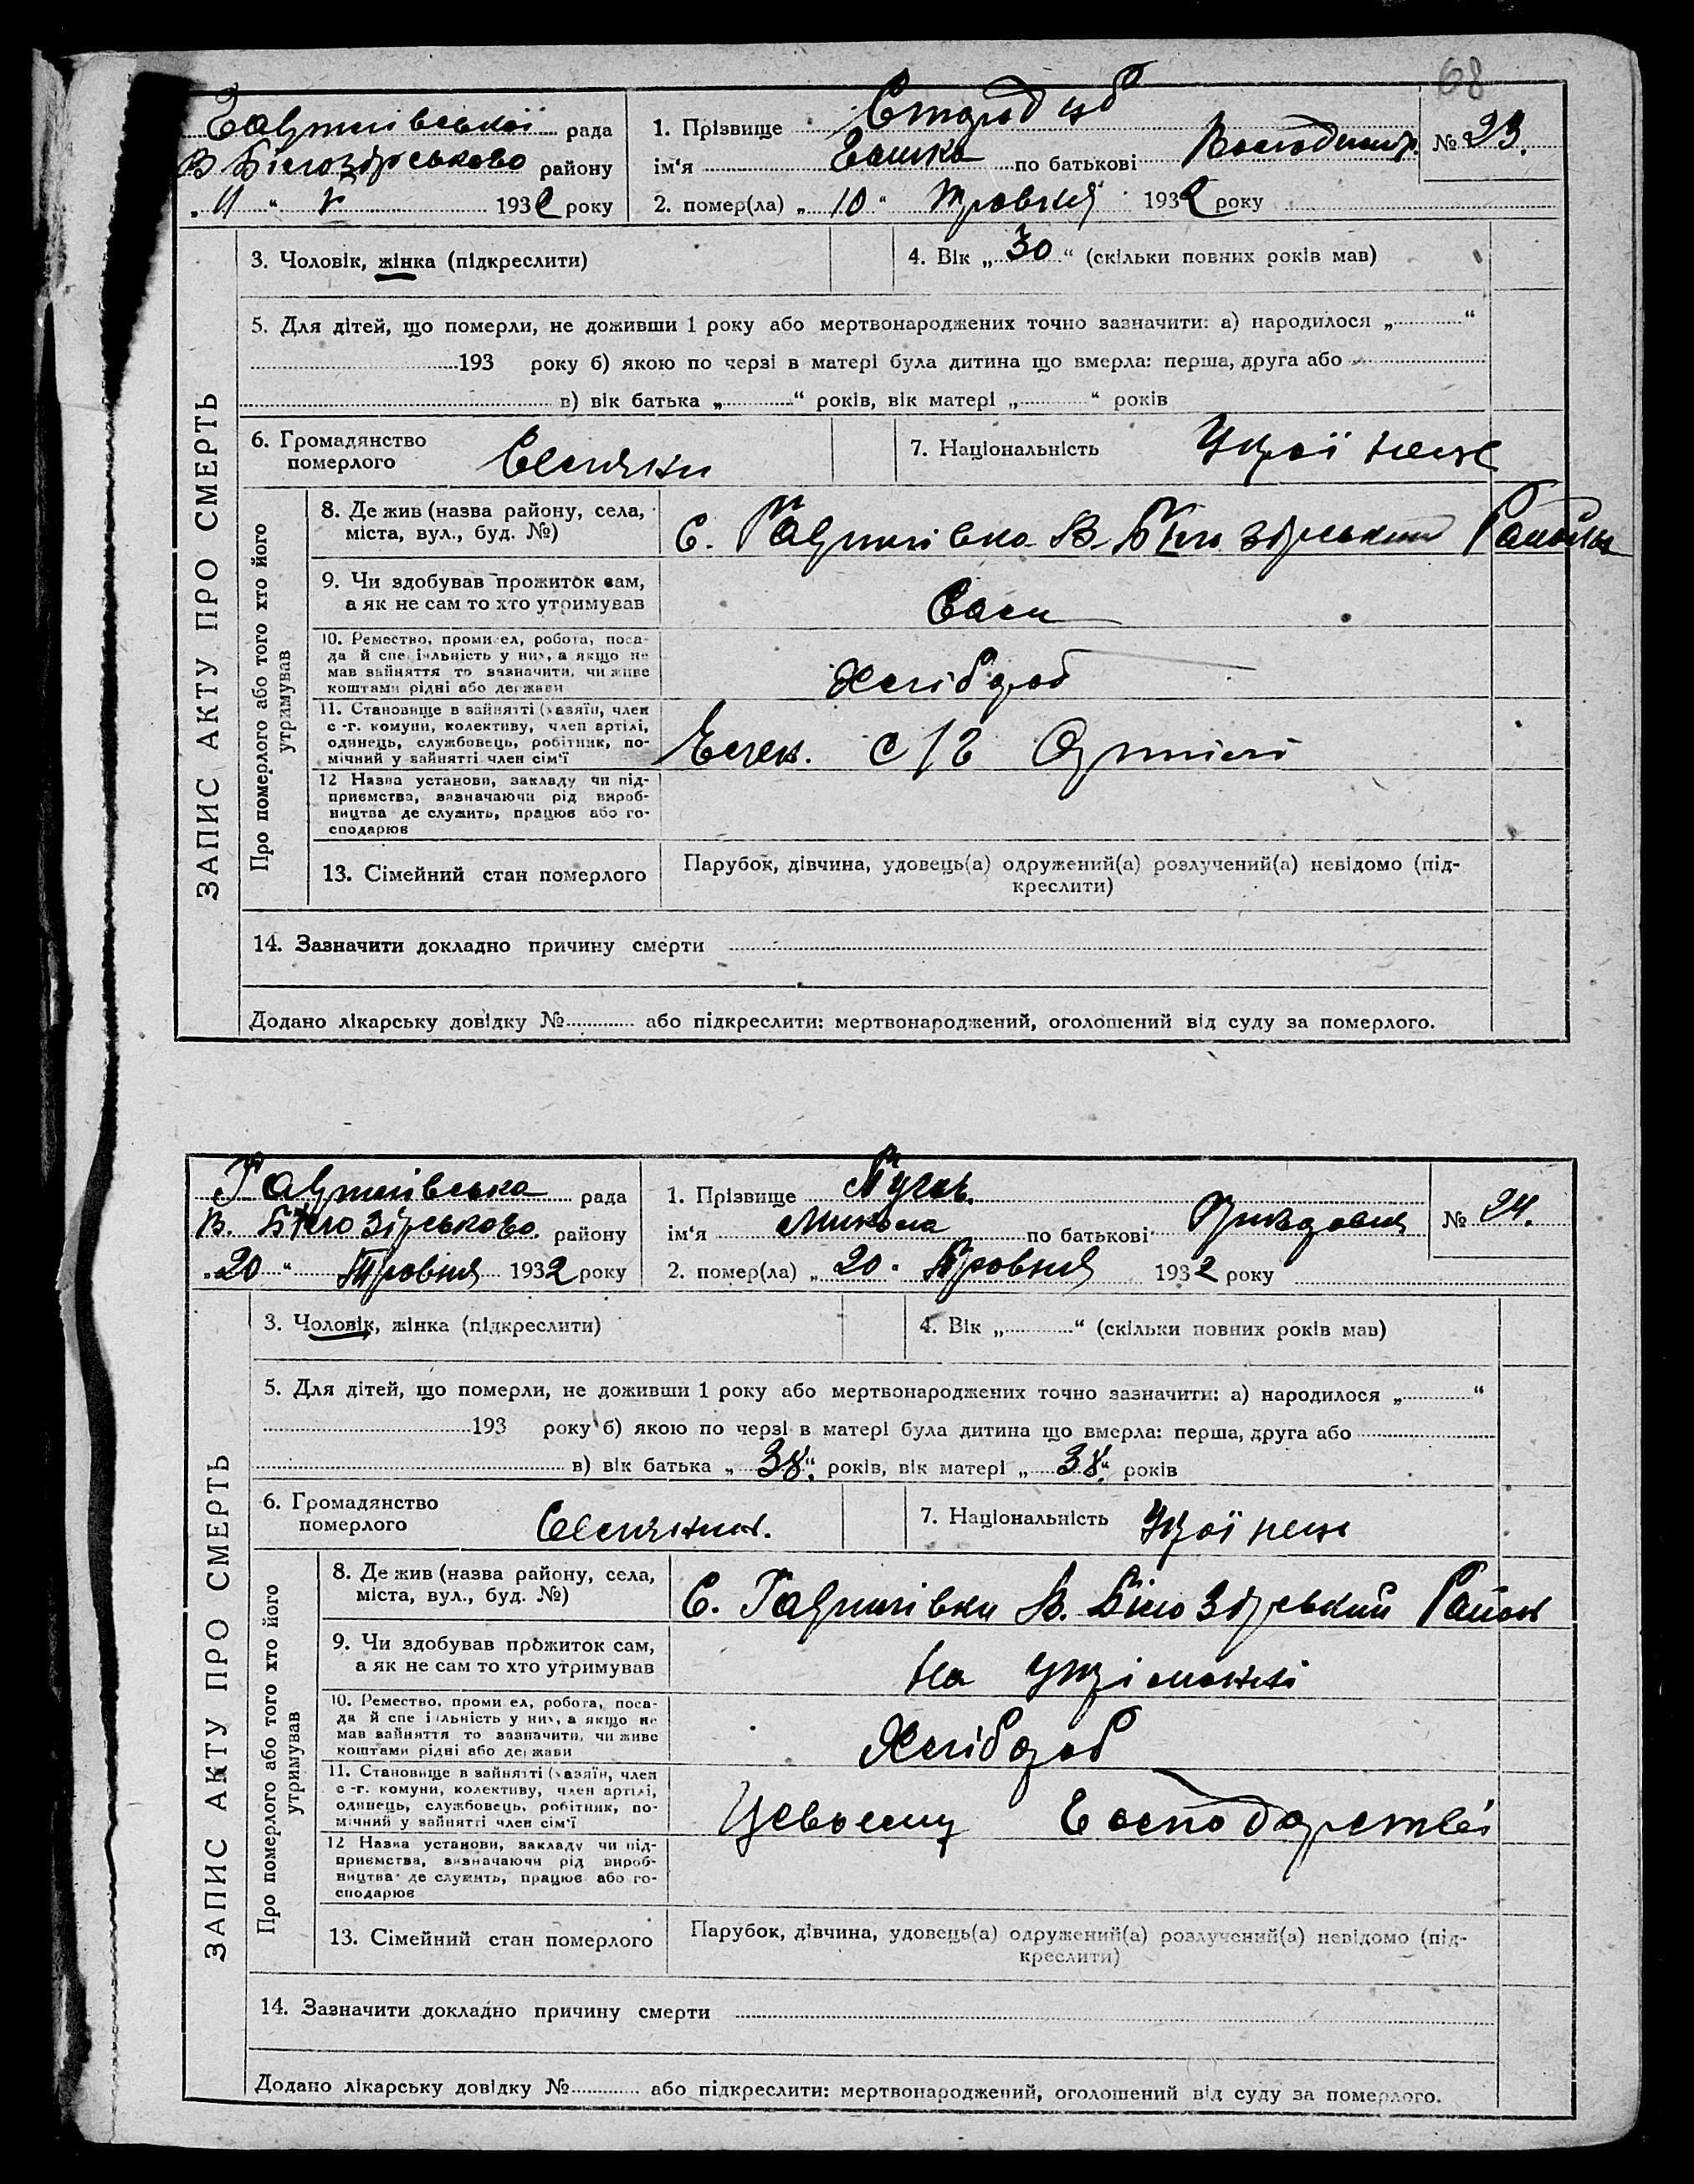 68
рада
В Білозірськово району
"11" V 1932 року
1. Прізвище
ім'я по батькові
№ 23.
2. помер(ла) "10" Травня 1932 року
ЗАПИС АКТУ ПРО СМЕРТЬ
3. Чоловік, жінка (підкреслити)
4. Вік „30“ (скільки повних років мав)
5. Для дітей, що померли, не доживши 1 року або мертвонароджених точно зазначити: а) народилося „ “
193 року б) якою по черзі в матері була дитина що вмерла: перша, друга або
в) вік батька „ “ років, вік матері „ “ років
6. Громадянство
померлого Селянки
7. Національність Україн
Про померлого або того хто його
утримував
8. Де жив (назва району, села,
міста, вул., буд. №)
С. В. Білозірський Район
9. Чи здобував прожиток сам,
а як не сам то хто утримував
Сама
10. Ремество, промисел, робота, поса-
да й спеціяльність у них, а якщо не
мав зайняття то зазначити, чи живе
коштами рідні або держави
Хлібороб
11. Становище в зайнятті (хазяїн, член
с.-г. комуни, колективу, член артілі,
одинець, службовець, робітник, по-
мічний у зайнятті член сім'ї
Член. с/г Артілі
12 Назва установи, закладу чи під-
приємства, зазначаючи рід вироб-
ництва де служить, працює або го-
сподарює
13. Сімейний стан померлого
Парубок, дівчина, удовець(а) одружений(а) розлучений(а) невідомо (під-
креслити)
14. Зазначити докладно причину смерти
Додано лікарську довідку № або підкреслити: мертвонароджений, оголошений від суду за померлого.
рада
В. Білозірськово. району
"20" Травня 1932 року
1. Прізвище
ім'я Микола по батькові
№ 24.
2. помер(ла) "20" Травня 1932 року
ЗАПИС АКТУ ПРО СМЕРТЬ
3. Чоловік, жінка (підкреслити)
4. Вік „ “ (скільки повних років мав)
5. Для дітей, що померли, не доживши 1 року або мертвонароджених точно зазначити: а) народилося „ “
193 року б) якою по черзі в матері була дитина що вмерла: перша, друга або
в) вік батька „38“ років, вік матері „38“ років
6. Громадянство
померлого Селянин.
7. Національність Україн
Про померлого або того хто його
утримував
8. Де жив (назва району, села,
міста, вул., буд. №)
С. В. Білозірський Район
9. Чи здобував прожиток сам,
а як не сам то хто утримував
На утріманні
10. Ремество, промисел, робота, поса-
да й спеціяльність у них, а якщо не
мав зайняття то зазначити, чи живе
коштами рідні або держави
Хлібороб
11. Становище в зайнятті (хазяїн, член
с.-г. комуни, колективу, член артілі,
одинець, службовець, робітник, по-
мічний у зайнятті член сім'ї
У своему Господарстві
12 Назва установи, закладу чи під-
приємства, зазначаючи рід вироб-
ництва де служить, працює або го-
сподарює
13. Сімейний стан померлого
Парубок, дівчина, удовець(а) одружений(а) розлучений(а) невідомо (під-
креслити)
14. Зазначити докладно причину смерти
Додано лікарську довідку № або підкреслити: мертвонароджений, оголошений від суду за померлого.